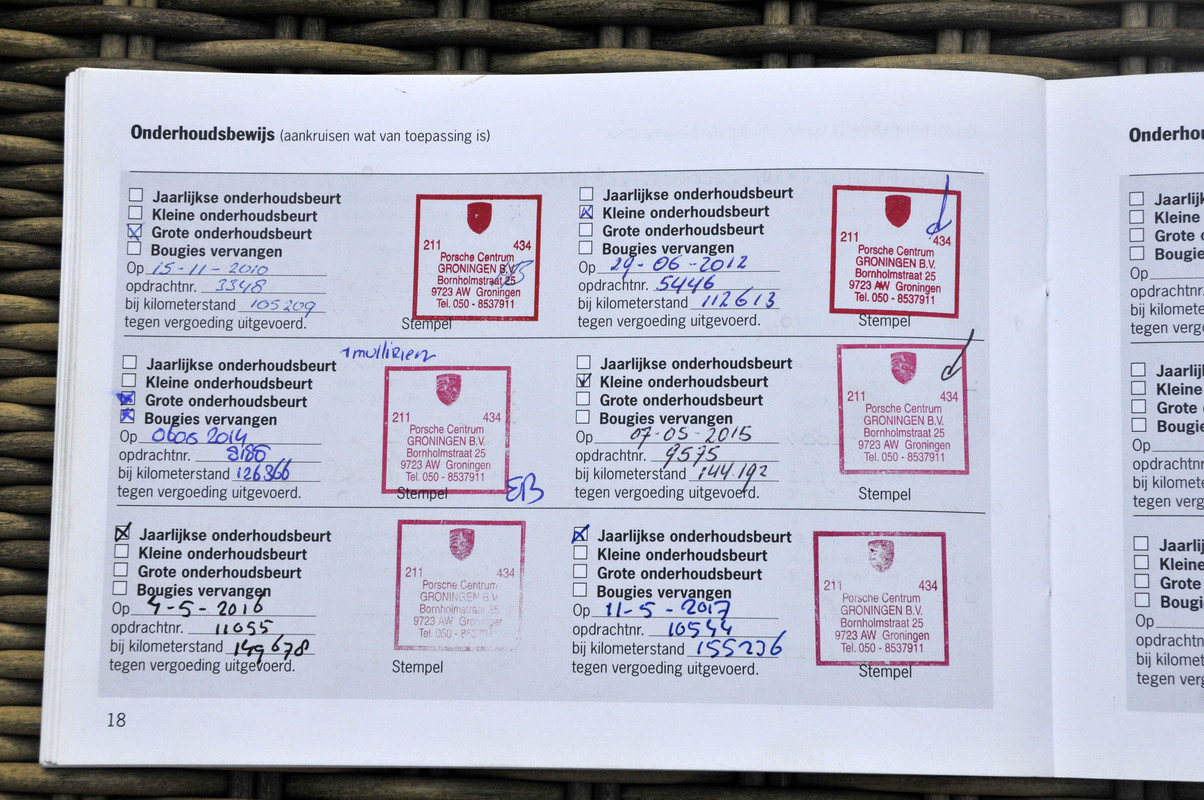 Onderhoudsbewijs (aankruisen wat van toepassing is)
Jaarlijkse onderhoudsbeurt
Kleine onderhoudsbeurt
Grote onderhoudsbeurt
Bougies vervangen
Op 15-11-2010
opdrachtnr. 3348
bij kilometerstand 105209
tegen vergoeding uitgevoerd.
211 434
Porsche Centrum
GRONINGEN B.V.
Bornholmstraat 25
9723 AW Groningen
Tel. 050 - 8537911
Stempel
Jaarlijkse onderhoudsbeurt
Kleine onderhoudsbeurt
Grote onderhoudsbeurt
Bougies vervangen
Op 29-06-2012
opdrachtnr. 5446
bij kilometerstand 112613
tegen vergoeding uitgevoerd.
211 434
Porsche Centrum
GRONINGEN B.V.
Bornholmstraat 25
9723 AW Groningen
Tel. 050 - 8537911
Stempel
Jaarlijkse onderhoudsbeurt
Kleine onderhoudsbeurt
Grote onderhoudsbeurt
Bougies vervangen
Op 0605 2014
opdrachtnr. 8180
bij kilometerstand 126366
tegen vergoeding uitgevoerd.
211 434
Porsche Centrum
GRONINGEN B.V.
Bornholmstraat 25
9723 AW Groningen
Tel. 050 - 8537911
Stempel
EB
Jaarlijkse onderhoudsbeurt
Kleine onderhoudsbeurt
Grote onderhoudsbeurt
Bougies vervangen
Op 07-05-2015
opdrachtnr. 9575
bij kilometerstand 144.192
tegen vergoeding uitgevoerd.
211 434
Porsche Centrum
GRONINGEN B.V.
Bornholmstraat 25
9723 AW Groningen
Tel. 050 - 8537911
Stempel
Jaarlijkse onderhoudsbeurt
Kleine onderhoudsbeurt
Grote onderhoudsbeurt
Bougies vervangen
Op 4-5-2016
opdrachtnr. 11055
bij kilometerstand 149678
tegen vergoeding uitgevoerd.
211 434
Porsche Centrum
GRONINGEN B.V.
Bornholmstraat
9723 AW Groningen
Tel. 050 -
Stempel
Jaarlijkse onderhoudsbeurt
Kleine onderhoudsbeurt
Grote onderhoudsbeurt
Bougies vervangen
Op 11-5-2017
opdrachtnr. 10544
bij kilometerstand 155236
tegen vergoeding uitgevoerd.
211 434
Porsche Centrum
GRONINGEN B.V.
Bornholmstraat 25
9723 AW Groningen
Tel. 050 - 8537911
Stempel
18
Onderhou
Jaarlijk
Kleine
Grote o
Bougies
Op
opdrachtnr.
bij kilomete
tegen verg
Jaarlijk
Kleine
Grote
Bougie
Op
opdrachtn
bij kilomete
tegen verg
Jaarlij
Kleine
Grote
Bougi
Op
opdrachtn
bij kilomet
tegen verg